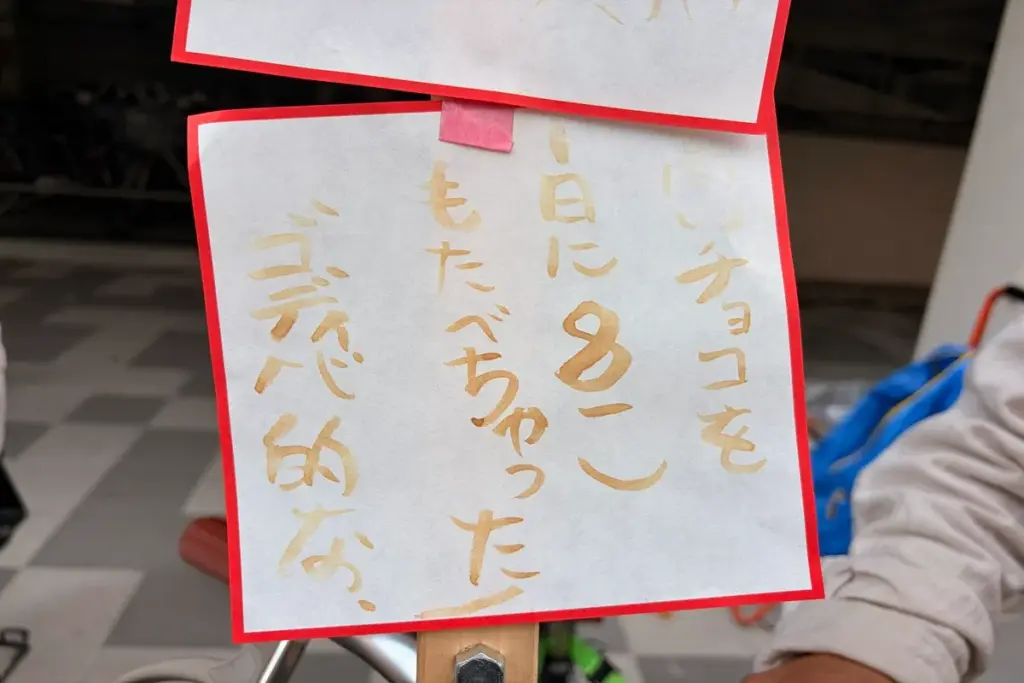 いチョコを
1日に8こ
もたべちゃったー
ゴディバ的な、